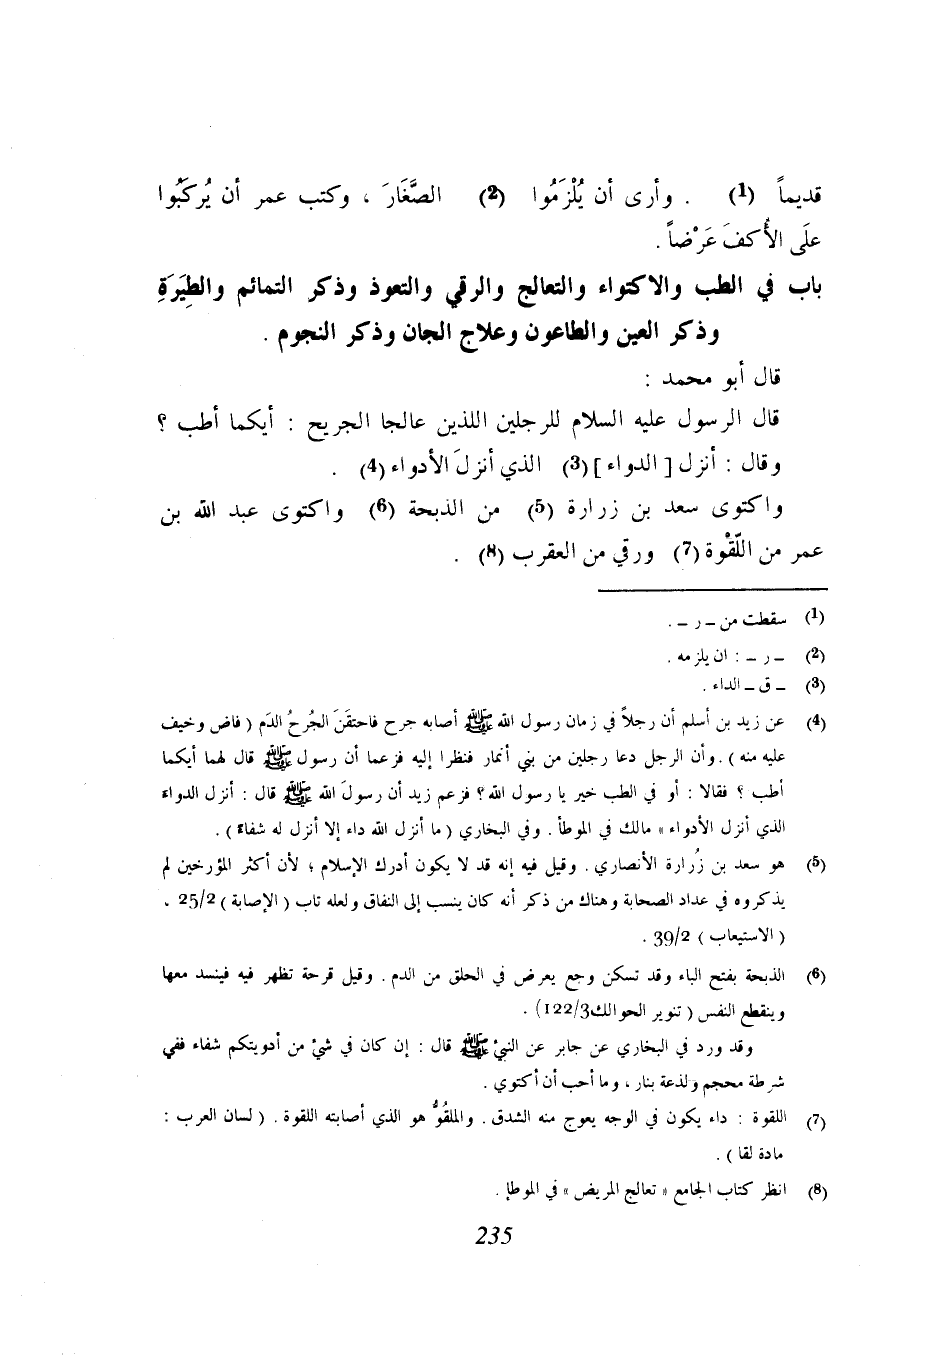 قديماً (1) . وأرى أن يُلْزَمُوا (2) الصَّغَارَ ، وكتب عمر أن يُركَبُوا
علَى الأُكفَ عَرْضاً .
باب في الطب والاكتواء والتعالج والرقي والتعوذ وذكر التمائم والطِيَرَةِ
وذكر العين والطاعون وعلاج الجان وذكر النجوم .
قال أبو محمد :
قال الرسول عليه السلام للرجلين اللذين عالجا الجريح : أيكما أطب ؟
وقال : أنزل [ الدواء ] (3) الذي أنزلَ الأدواء (4) .
واكتوى سعد بن زرارة (5) من الذبحة (6) واكتوى عبد الله بن
عمر من اللَّقْوة (7) ورقي من العقرب (8) .
(1) سقطت من ــ ر ــ .
(2) ــ ر ــ : ان يلزمه .
(3) ــ ق ــ الداء .
(4) عن زيد بن أسلم أن رجلاً في زمان رسول الله ﷺ أصابه جرح فاحتقَنَ الجُرحُ الدَم ( فاض وخيف
عليه منه ) . وأن الرجل دعا رجلين من بني أنمار فنظرا إليه فزعما أن رسول ﷺ قال لهما أيكما
أطب ؟ فقالا : أو في الطب خير يا رسول الله ؟ فزعم زيد أن رسولَ الله ﷺ قال : أنزل الدواء
الذي أنزل الأدواء » مالك في الموطأ . وفي البخاري ( ما أنزل الله داء إلا أنزل له شفاء ) .
(5) هو سعد بن زُرارة الأنصاري . وقيل فيه إنه قد لا يكون أدرك الإسلام ؛ لأن أكثر المؤرخين لم
يذكروه في عداد الصحابة وهناك من ذكر أنه كان ينسب إلى النفاق ولعله تاب ( الإصابة ) 25/2 ،
( الاستيعاب ) 39/2 .
(6) الذبحة بفتح الباء وقد تسكن وجع يعرض في الحلق من الدم . وقيل قرحة تظهر فيه فينسد معها
وينقطع النفس ( تنوير الحوالك 122/3) .
وقد ورد في البخاري عن جابر عن النبيّ ﷺ قال : إن كان في شيْ من أدويتكم شفاء ففي
شرطة محجم ولذعة بنار ، وما أحب أن أكتوي .
(7) اللقوة : داء يكون في الوجه يعوج منه الشدق . والملقُوُّ هو الذي أصابته اللقوة . ( لسان العرب :
مادة لقا ) .
(8) انظر كتاب الجامع « تعالج المريض » في الموطإ .
235